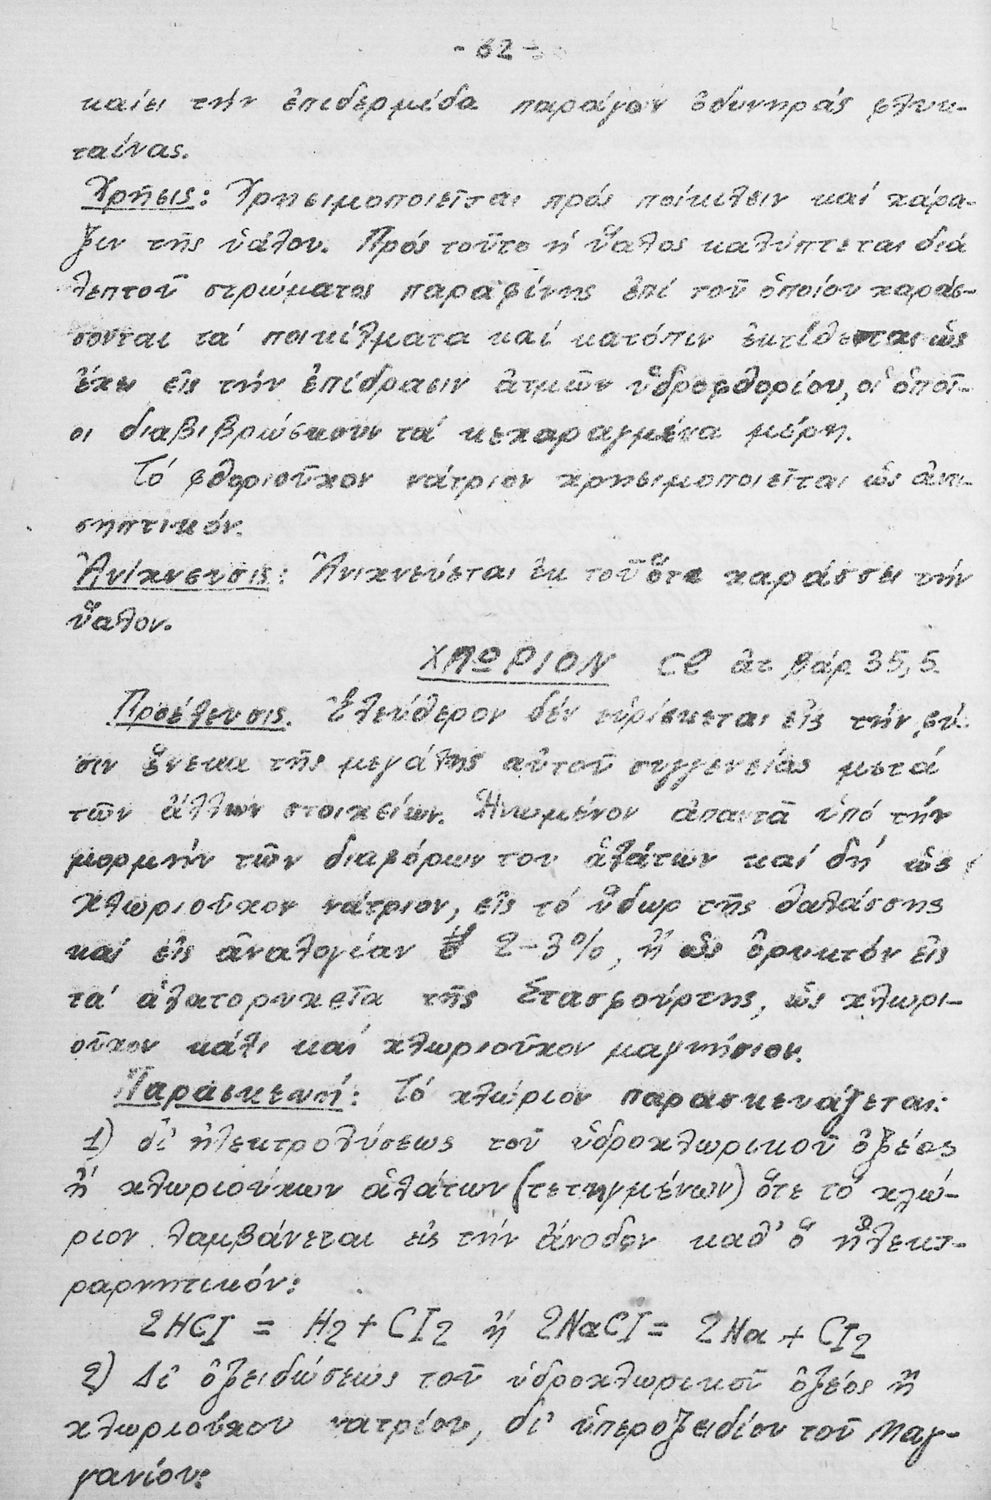 - 62 -
καίει τήν ἐπιδερμίδα παράγον ὀδυνηράς φλυκ-
ταίνας.
Χρῆσις: Χρησιμοποιεῖται πρός ποίκιλσιν καί χάρα-
ξιν τῆς ὑάλου. Πρός τοῦτο ἡ ὕαλος καλύπτεται διά
λεπτοῦ στρώματος παραφίνης ἐπί τοῦ ὁποίου χαράσ-
σονται τά ποικίλματα καί κατόπιν ἐκτίθεται ὡς
ἔχει εἰς τήν ἐπίδρασιν ἀτμῶν ὑδροφθορίου, οἱ ὁποῖ-
οι διαβιβρώσκουν τά κεχαραγμένα μέρη.
Τό φθοριοῦχον νάτριον χρησιμοποιεῖται ὡς ἀντι-
σηπτικόν.
Ἀνίχνευσις: Ἀνιχνεύεται ἐκ τοῦ ὅτι χαράσσει τήν
ὕαλον.
ΧΛΩΡΙΟΝ Cl ἀτ. βάρ. 35,5.
Προέλευσις. Ἐλεύθερον δέν εὑρίσκεται εἰς τήν φύ-
σιν ἕνεκα τῆς μεγάλης αὐτοῦ συγγενείας μετά
τῶν ἄλλων στοιχείων. Ἡνωμένον ἀπαντᾶ ὑπό τήν
μορφήν τῶν διαφόρων του ἁλάτων καί δή ὡς
χλωριοῦχον νάτριον, εἰς τό ὕδωρ τῆς θαλάσσης
καί εἰς ἀναλογίαν 2-3%, ἤ ὡς ὀρυκτόν εἰς
τά ἁλατορυχεῖα τῆς Στασφούρτης, ὡς χλωρι-
οῦχον κάλι καί χλωριοῦχον μαγνήσιον.
Παρασκευή: Τό χλώριον παρασκευάζεται:
1) δι' ἠλεκτρολύσεως τοῦ ὑδροχλωρικοῦ ὀξέος
ἤ χλωριούχων ἁλάτων (τετηγμένων) ὅτε τό χλώ-
ριον λαμβάνεται εἰς τήν ἄνοδον καθ' ὅ ἠλεκτ-
ραρνητικόν:
2HCI = H2 + CI2 ἤ 2NaCI = 2Na + CI2
2) Δι' ὀξειδώσεως τοῦ ὑδροχλωρικοῦ ὀξέος ἤ
χλωριούχου νατρίου, δι' ὑπεροξειδίου τοῦ Μαγ-
γανίου: